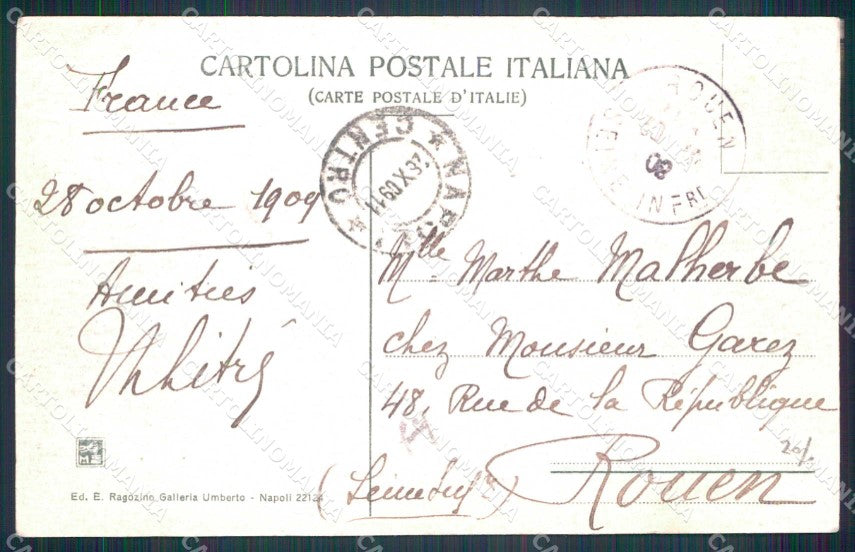 CARTOLINA POSTALE ITALIANA
(CARTE POSTALE D'ITALIE)
France
28 octobre 1909
Amitiés
NAPOLI
CENTRO
ROUEN
09
Mlle Marthe Malherbe
chez Monsieur Garez
48, Rue de la République
Rouen
Ed. E. Ragozino Galleria Umberto - Napoli
CARTOLINOMANIA